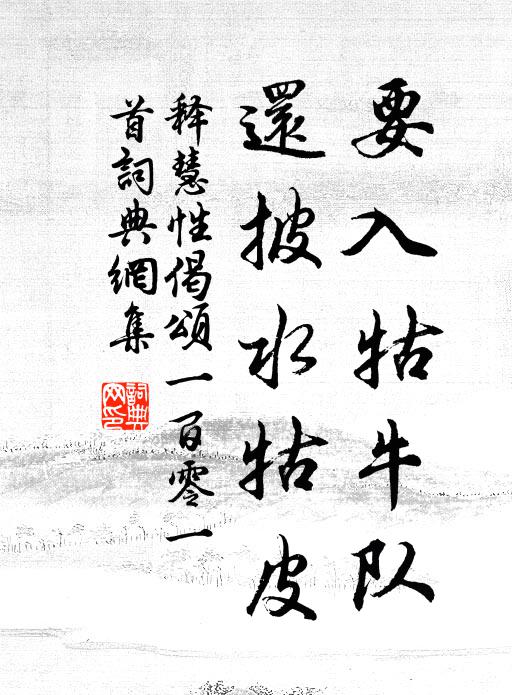 要入牯牛队
還披水牯皮
释慧性偈頌一百零一
首詞典網集
詞典
网印